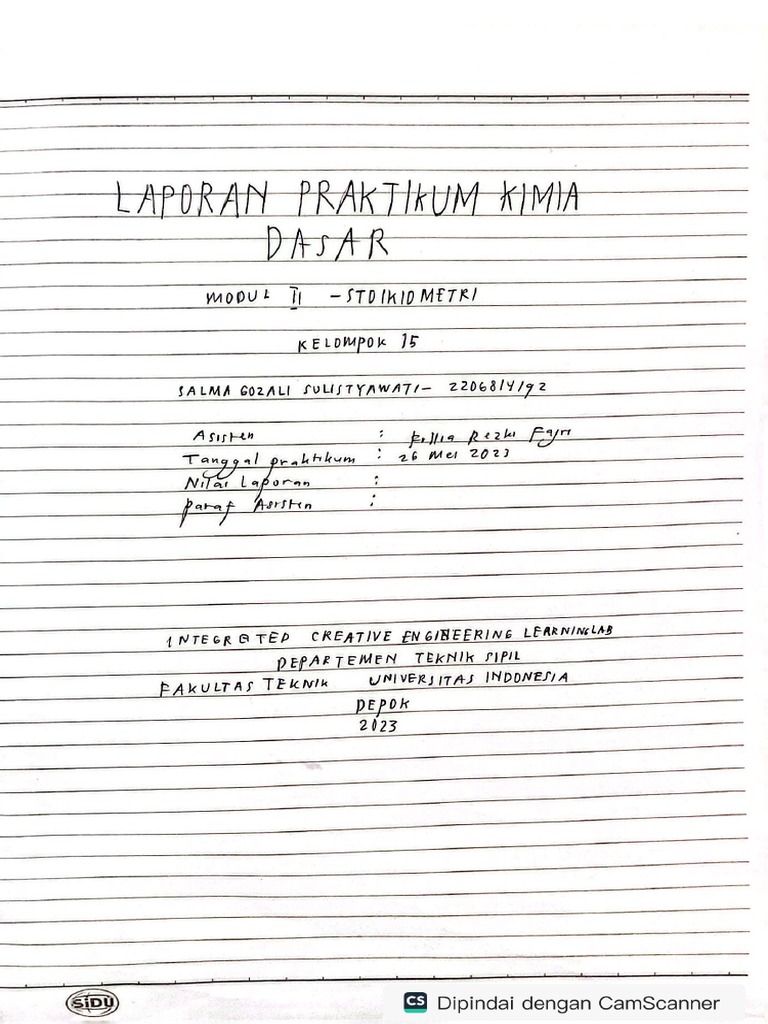 LAPORAN PRAKTIKUM KIMIA
DASAR
MODUL II - STOIKIOMETRI
KELOMPOK 15
SALMA GOZALI SULISTYAWATI - 2206814192
Asisten : Rezki Fajri
Tanggal praktikum : 26 Mei 2023
Nilai Laporan :
paraf Asisten :
INTEGRATED CREATIVE ENGINEERING LEARNINGLAB
DEPARTEMEN TEKNIK SIPIL
FAKULTAS TEKNIK UNIVERSITAS INDONESIA
DEPOK
2023
SiDU
CS Dipindai dengan CamScanner